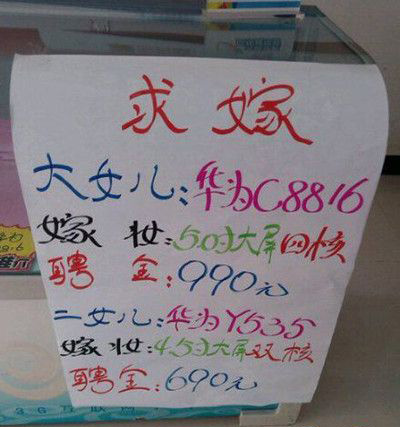 求嫁
大女儿：华为C8816
嫁妆：5.0吋大屏四核
聘金：990元
二女儿：华为Y535
嫁妆：4.5吋大屏双核
聘金：690元
3G互联网